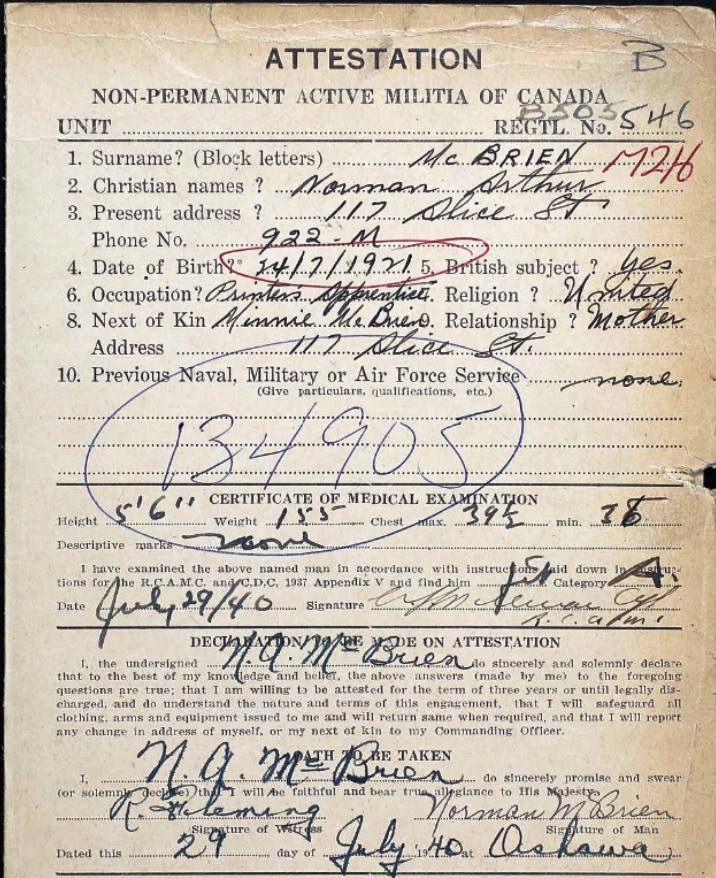 ATTESTATION B
NON-PERMANENT ACTIVE MILITIA OF CANADA
B505
UNIT REGTL. No. 546
1. Surname? (Block letters) Mc BRIEN M26
2. Christian names ? Norman Arthur
3. Present address ? 117 Alice St
Phone No. 922-M
4. Date of Birth? 24/7/1921 5. British subject ? yes.
6. Occupation? Printers Apprentice. Religion ? United
8. Next of Kin Minnie McBrien. Relationship ? Mother
Address 117 Alice St.
10. Previous Naval, Military or Air Force Service none.
(Give particulars, qualifications, etc.)
134905
CERTIFICATE OF MEDICAL EXAMINATION
Height 5'6" Weight 155 Chest max. 39½ min. 36
Descriptive marks none
I have examined the above named man in accordance with instructions laid down in instruc-
tions for the R.C.A.M.C. and C.D.C, 1937 Appendix V and find him fit Category A.
Date July 29/40 Signature
R.C.A.M.C.
DECLARATION TO BE MADE ON ATTESTATION
I, the undersigned N. A. McBrien do sincerely and solemnly declare
that to the best of my knowledge and belief, the above answers (made by me) to the foregoing
questions are true; that I am willing to be attested for the term of three years or until legally dis-
charged, and do understand the nature and terms of this engagement, that I will safeguard all
clothing, arms and equipment issued to me and will return same when required, and that I will report
any change in address of myself, or my next of kin to my Commanding Officer.
OATH TO BE TAKEN
I, N. A. McBrien do sincerely promise and swear
(or solemnly declare) that I will be faithful and bear true allegiance to His Majesty.
R. Fleming Norman McBrien
Signature of Witness Signature of Man
Dated this 29 day of July 1940 at Oshawa